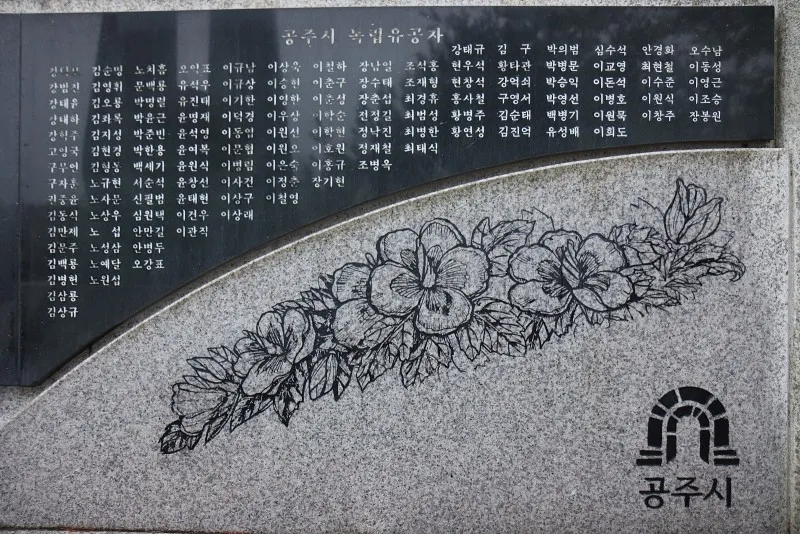 공주시 독립유공자
강태규 김 구 박의범 심수석 안경화 오수남
김순명 노치흠 오익표 이규남 이상욱 이철하 장남일 조석홍 현우석 황타관 박병문 이교영 최현철 이동성
강범진 김영휘 문백룡 유석우 이규상 이승현 이춘구 장수태 조재형 현창석 강억쇠 박승익 이돈석 이수준 이영근
강태륜 김오룡 박명렬 유진태 이기한 이영한 이춘성 장춘섭 최경휴 홍사철 구영서 박영선 이병호 이원식 이조승
강태하 김좌록 박윤근 윤명재 이덕경 이우상 이학순 전정길 최범성 황병주 김순태 백병기 이원묵 이창주 장봉원
김지성 박준빈 윤석영 이동엽 이원선 이학현 정낙진 최병한 황연성 김진억 유성배 이희도
고영국 김현경 박한용 윤여복 이문협 이원오 이호원 정재철 최태식
김형동 백세기 윤원식 이병림 이은숙 이홍규 조병옥
구자훈 노규현 서순석 윤창선 이사건 이정춘 장기현
권중윤 노사문 신필범 윤태현 이상구 이철영
김동식 노상우 심원택 이건우 이상래
김만제 노 섭 안만길 이관직
김문주 노성삼 안병두
김백룡 노예달 오강표
김병헌 노원섭
김삼룡
김상규
공주시